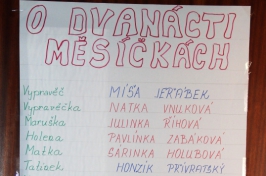 O DVANÁCTI
MĚSÍČKÁCH
Vypravěč MÍŠA JEŘÁBEK
Vypravěčka NATKA VNUKOVÁ
Maruška JULINKA ŘÍHOVÁ
Holena PAVLÍNKA ZABÁKOVÁ
Matka SÁRINKA HOLUBOVÁ
Tatínek HONZÍK PŘÍVRATSKÝ